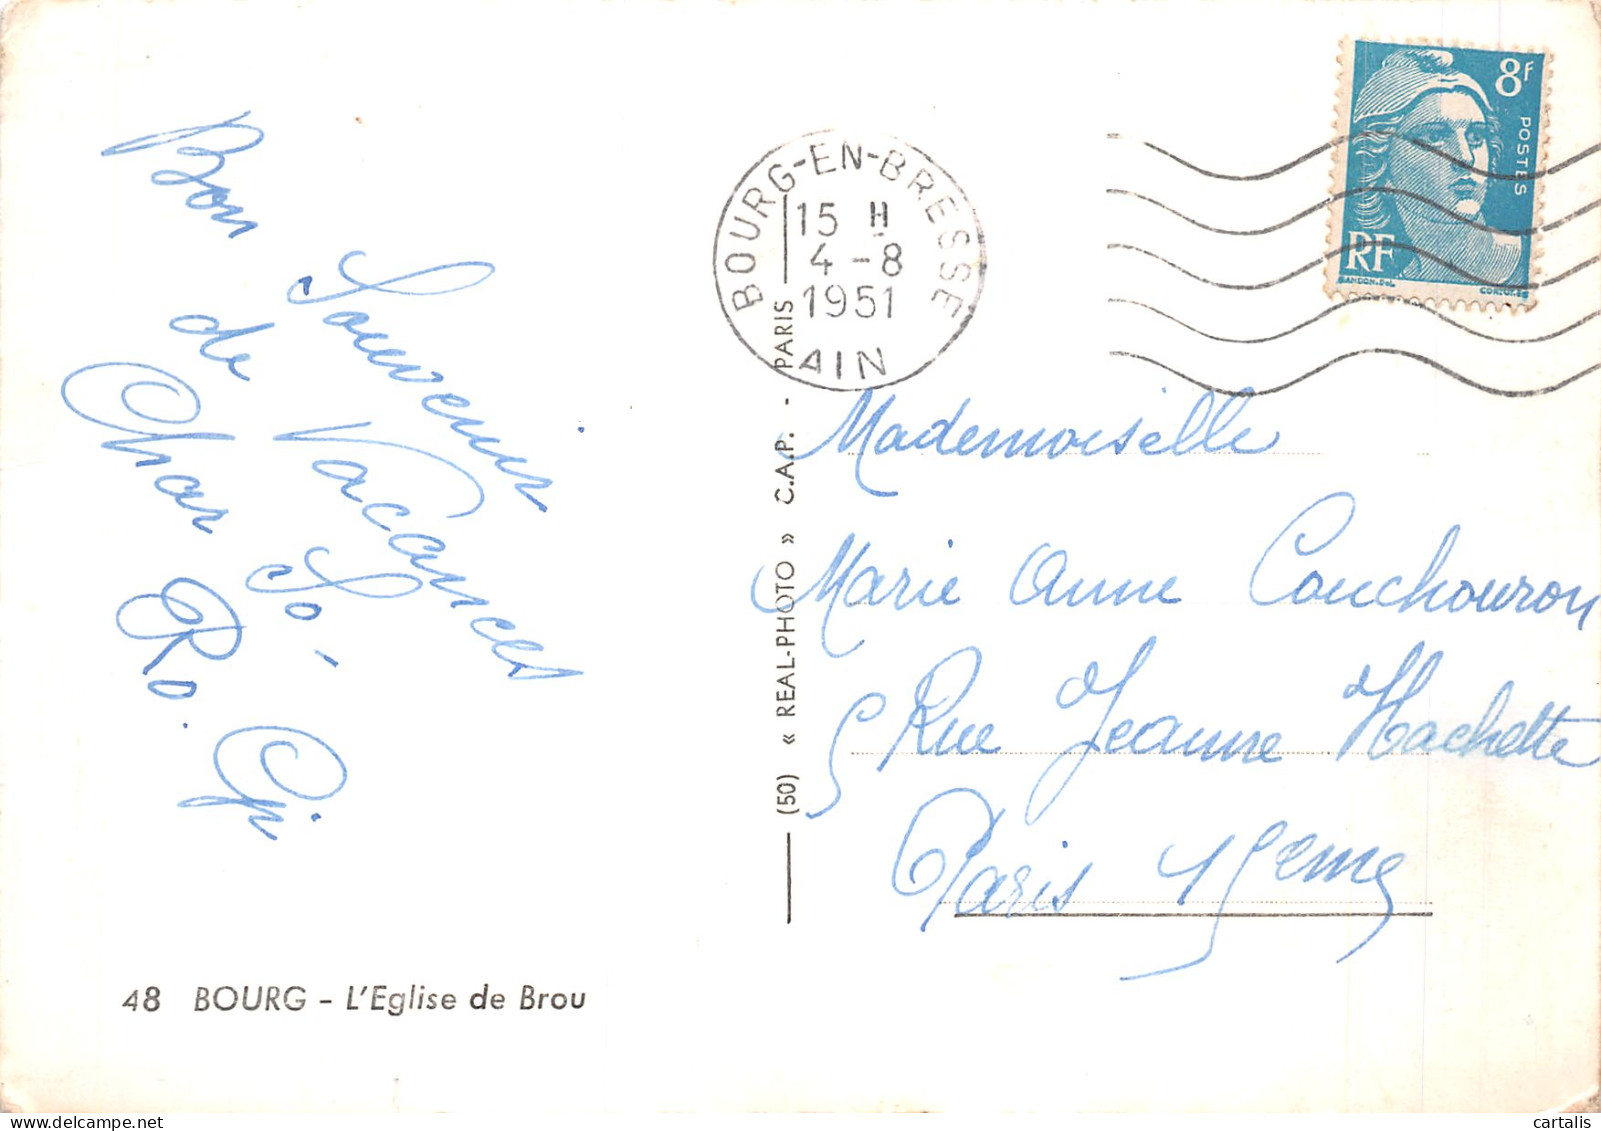 Bon Souvenir
de Vacances
Char Lo
Ro. Gi
48 BOURG - L'Eglise de Brou
(50) « REAL-PHOTO » C.A.P. - PARIS
BOURG-EN-BRESSE
15 H
4 - 8
1951
AIN
8F
POSTES
RF
GANDON.DEL
Mademoiselle
Marie Anne Couchouron
5 Rue Jeanne Hachette
Paris 15eme
cartalis